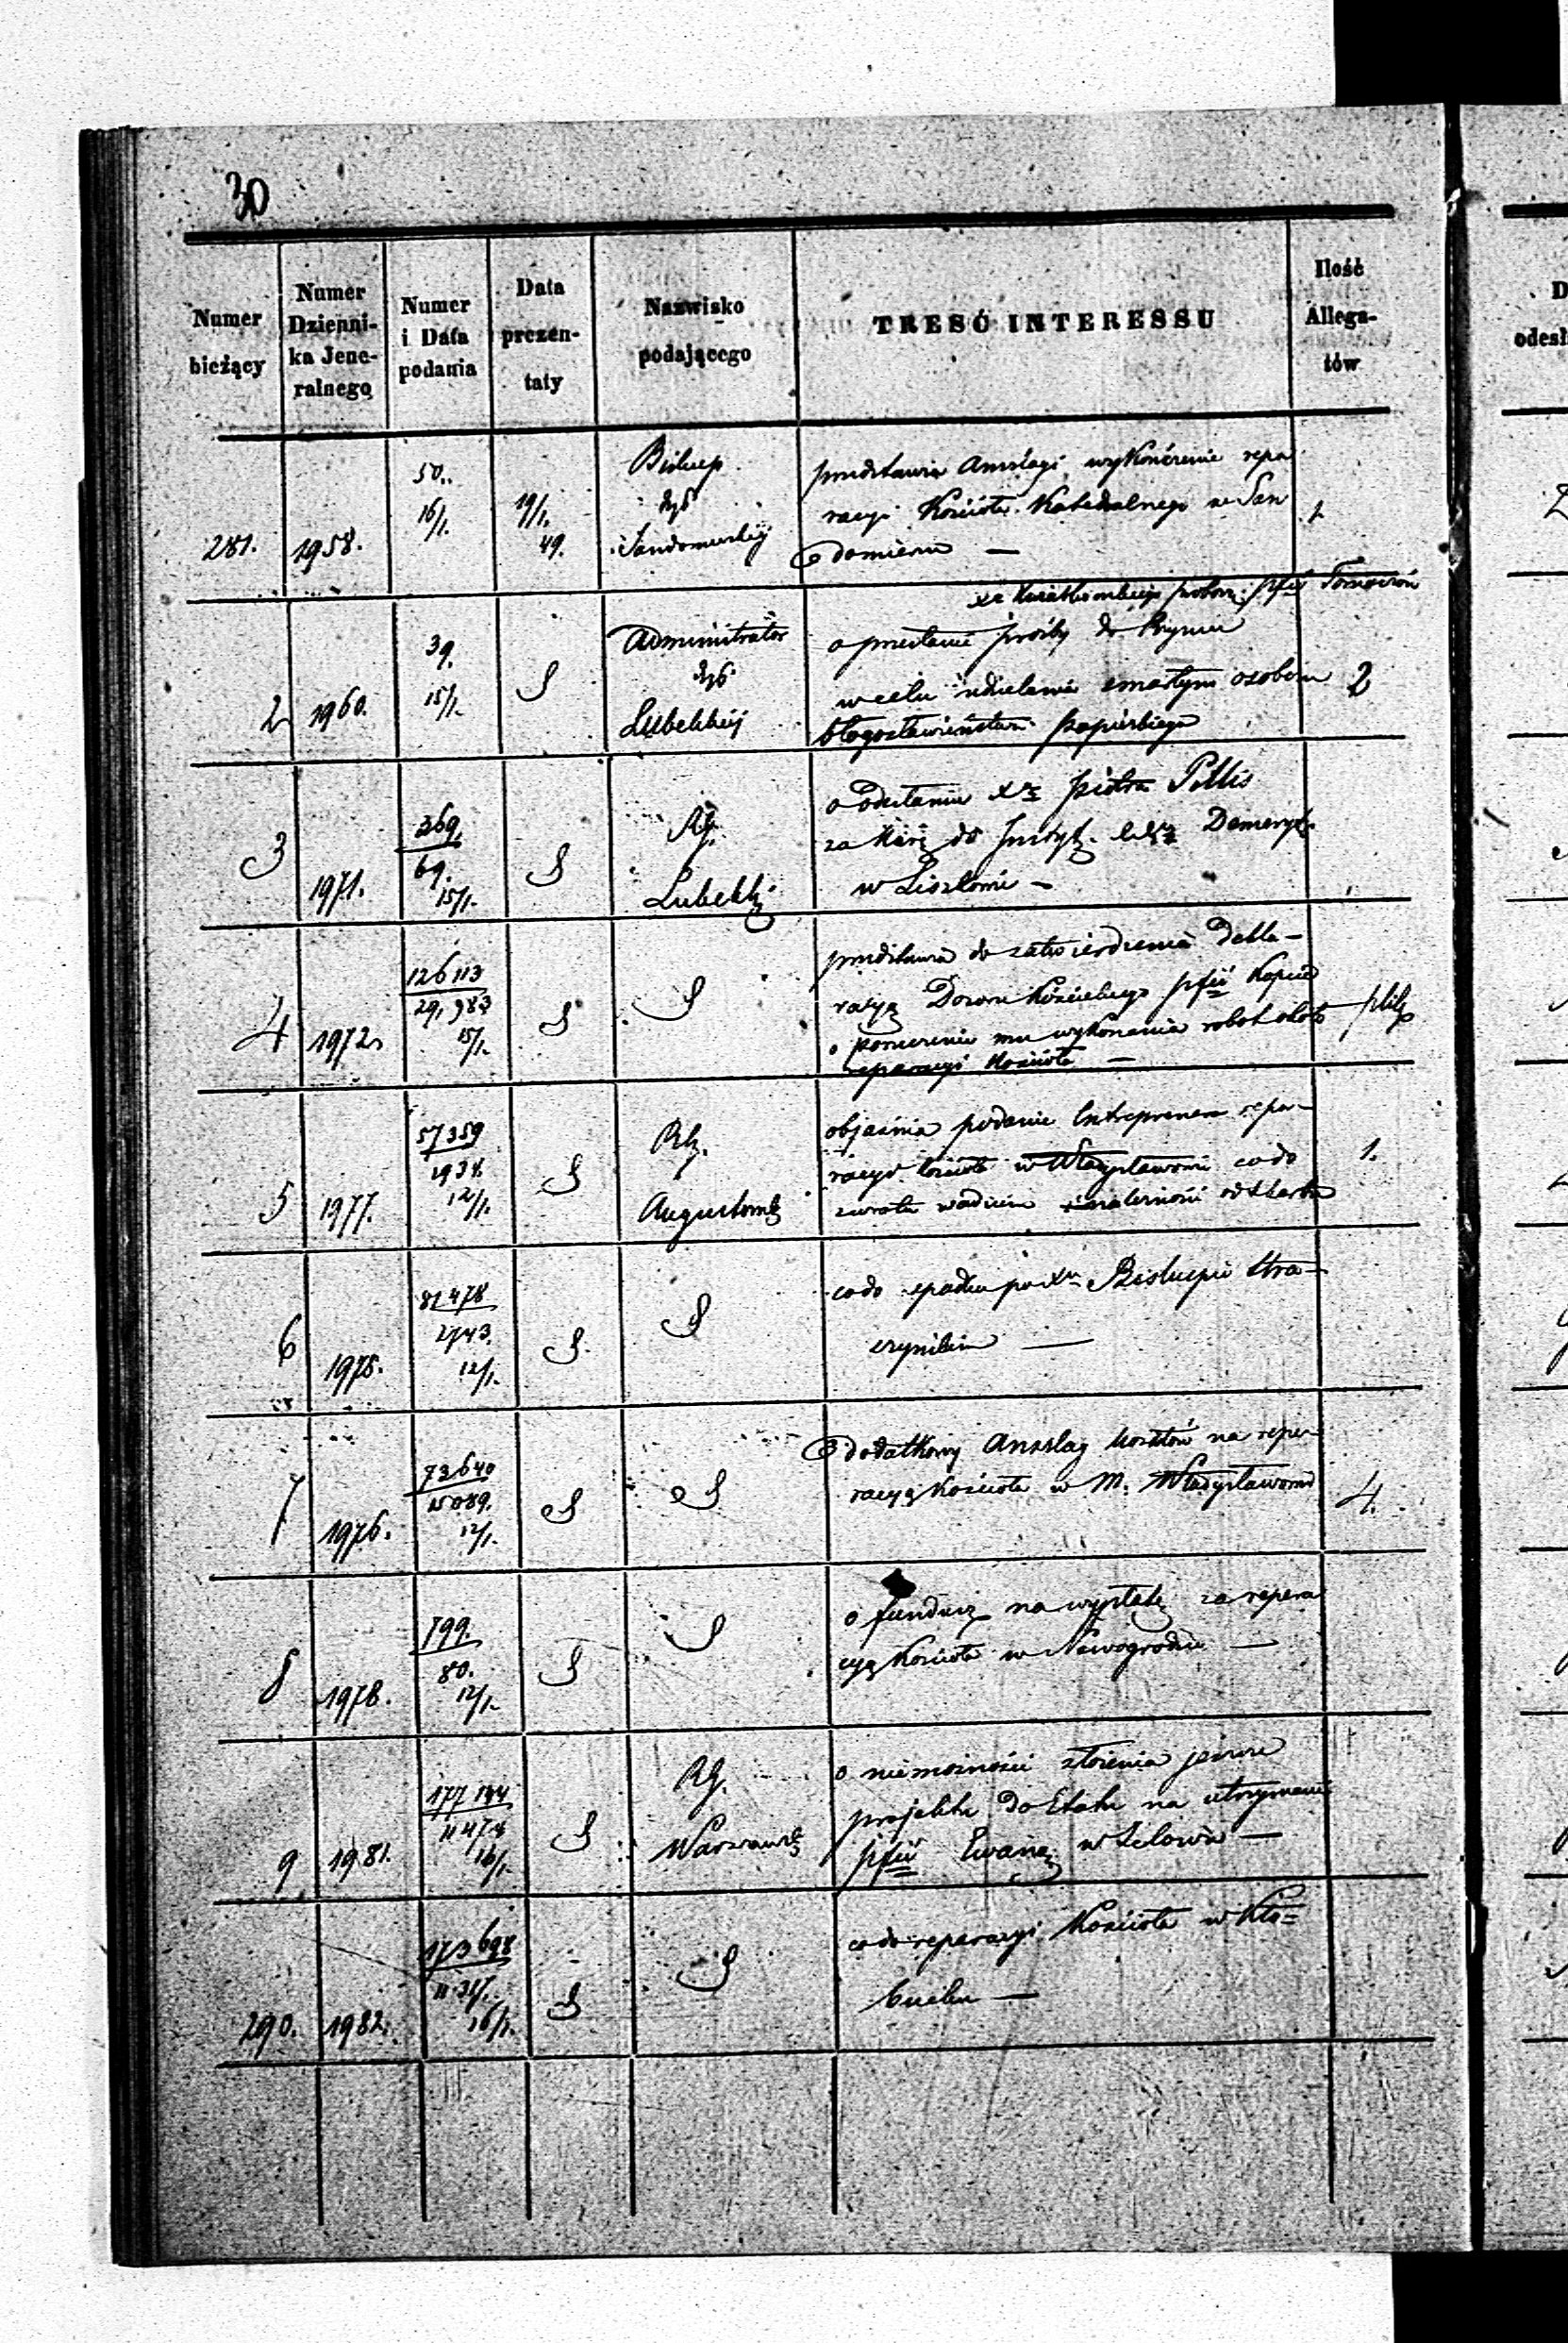 30
Numer bieżący
Numer Dzienni- ka Jene- ralnego
Numer i Data podania
Data prezen- taty
Nazwisko podającego
TRESĆ INTERESSU
Ilość Allega- tów
281.
1958.
50..
16/1.
19/1.
49.
Biskup
dyec
Sandomierskiej
przedstawia Anszlagi wykończenie repa
racyi Kościoła Katedralnego w San
domierzu —
1.
2
1960.
39.
15/1.
Administrator
Lubelskiej
o przesłanie prośby do Rzymu
w celu udzielania zmarłym osobom
błogosławieństwa papieskiego
2
3
1971.
369.
69.
15/1.
RG.
Lubelski
o odesłaniu Xa Piotra
za karę do Demeryt.
w Liszkowie —
4
1972.
126113
29,983
15/1.
przedstawia do zatwierdzenia Dekla-
racyą Dozoru Kościelnego
o powierzenie mu wykonania robot około
reparacyi Kościoła —
plik
5
1977.
57359
1938.
12/1.
RG.
Augustowsk
objaśnia podanie Entreprenera repa-
racyi kościoła w Władysławowie co do
zwrotu wadium i należności od skarbu
1.
6
1975.
81478
2743.
12/1.
co do spadku po Xu Biskupie Stra-
szyńskim —
7
1976.
73640
15089.
12/1.
dodatkowy Anszlag kosztów na repe-
racyą Kościoła w M. Władysławowie
4.
8
1978.
799.
80.
12/1.
o fundusz na wypłatę za repera
cyą Kościoła w Nowogrodzie —
9
1981.
177144
11474
16/1.
RG.
Warszawsk
o niemożności złożenia jeszcze
projektu do Etatu na utrzymanie
pfii Ewang. w Zelowie —
290.
1982.
173698
16/1.
co do reparacyi Kościoła w Kło-
bucku —
D
odesł